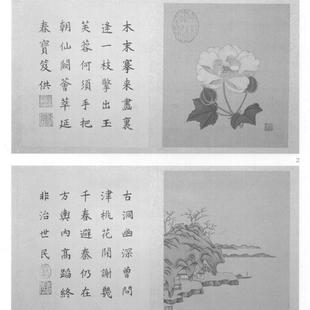 木末搴來畫裏
逢一枝擎出玉
芙蓉何須手把
朝仙闕薈萃延
春寶笈供
2
古洞幽深曾問
津桃花開謝幾
千春避秦仍在
方輿內高蹈終
非治世民